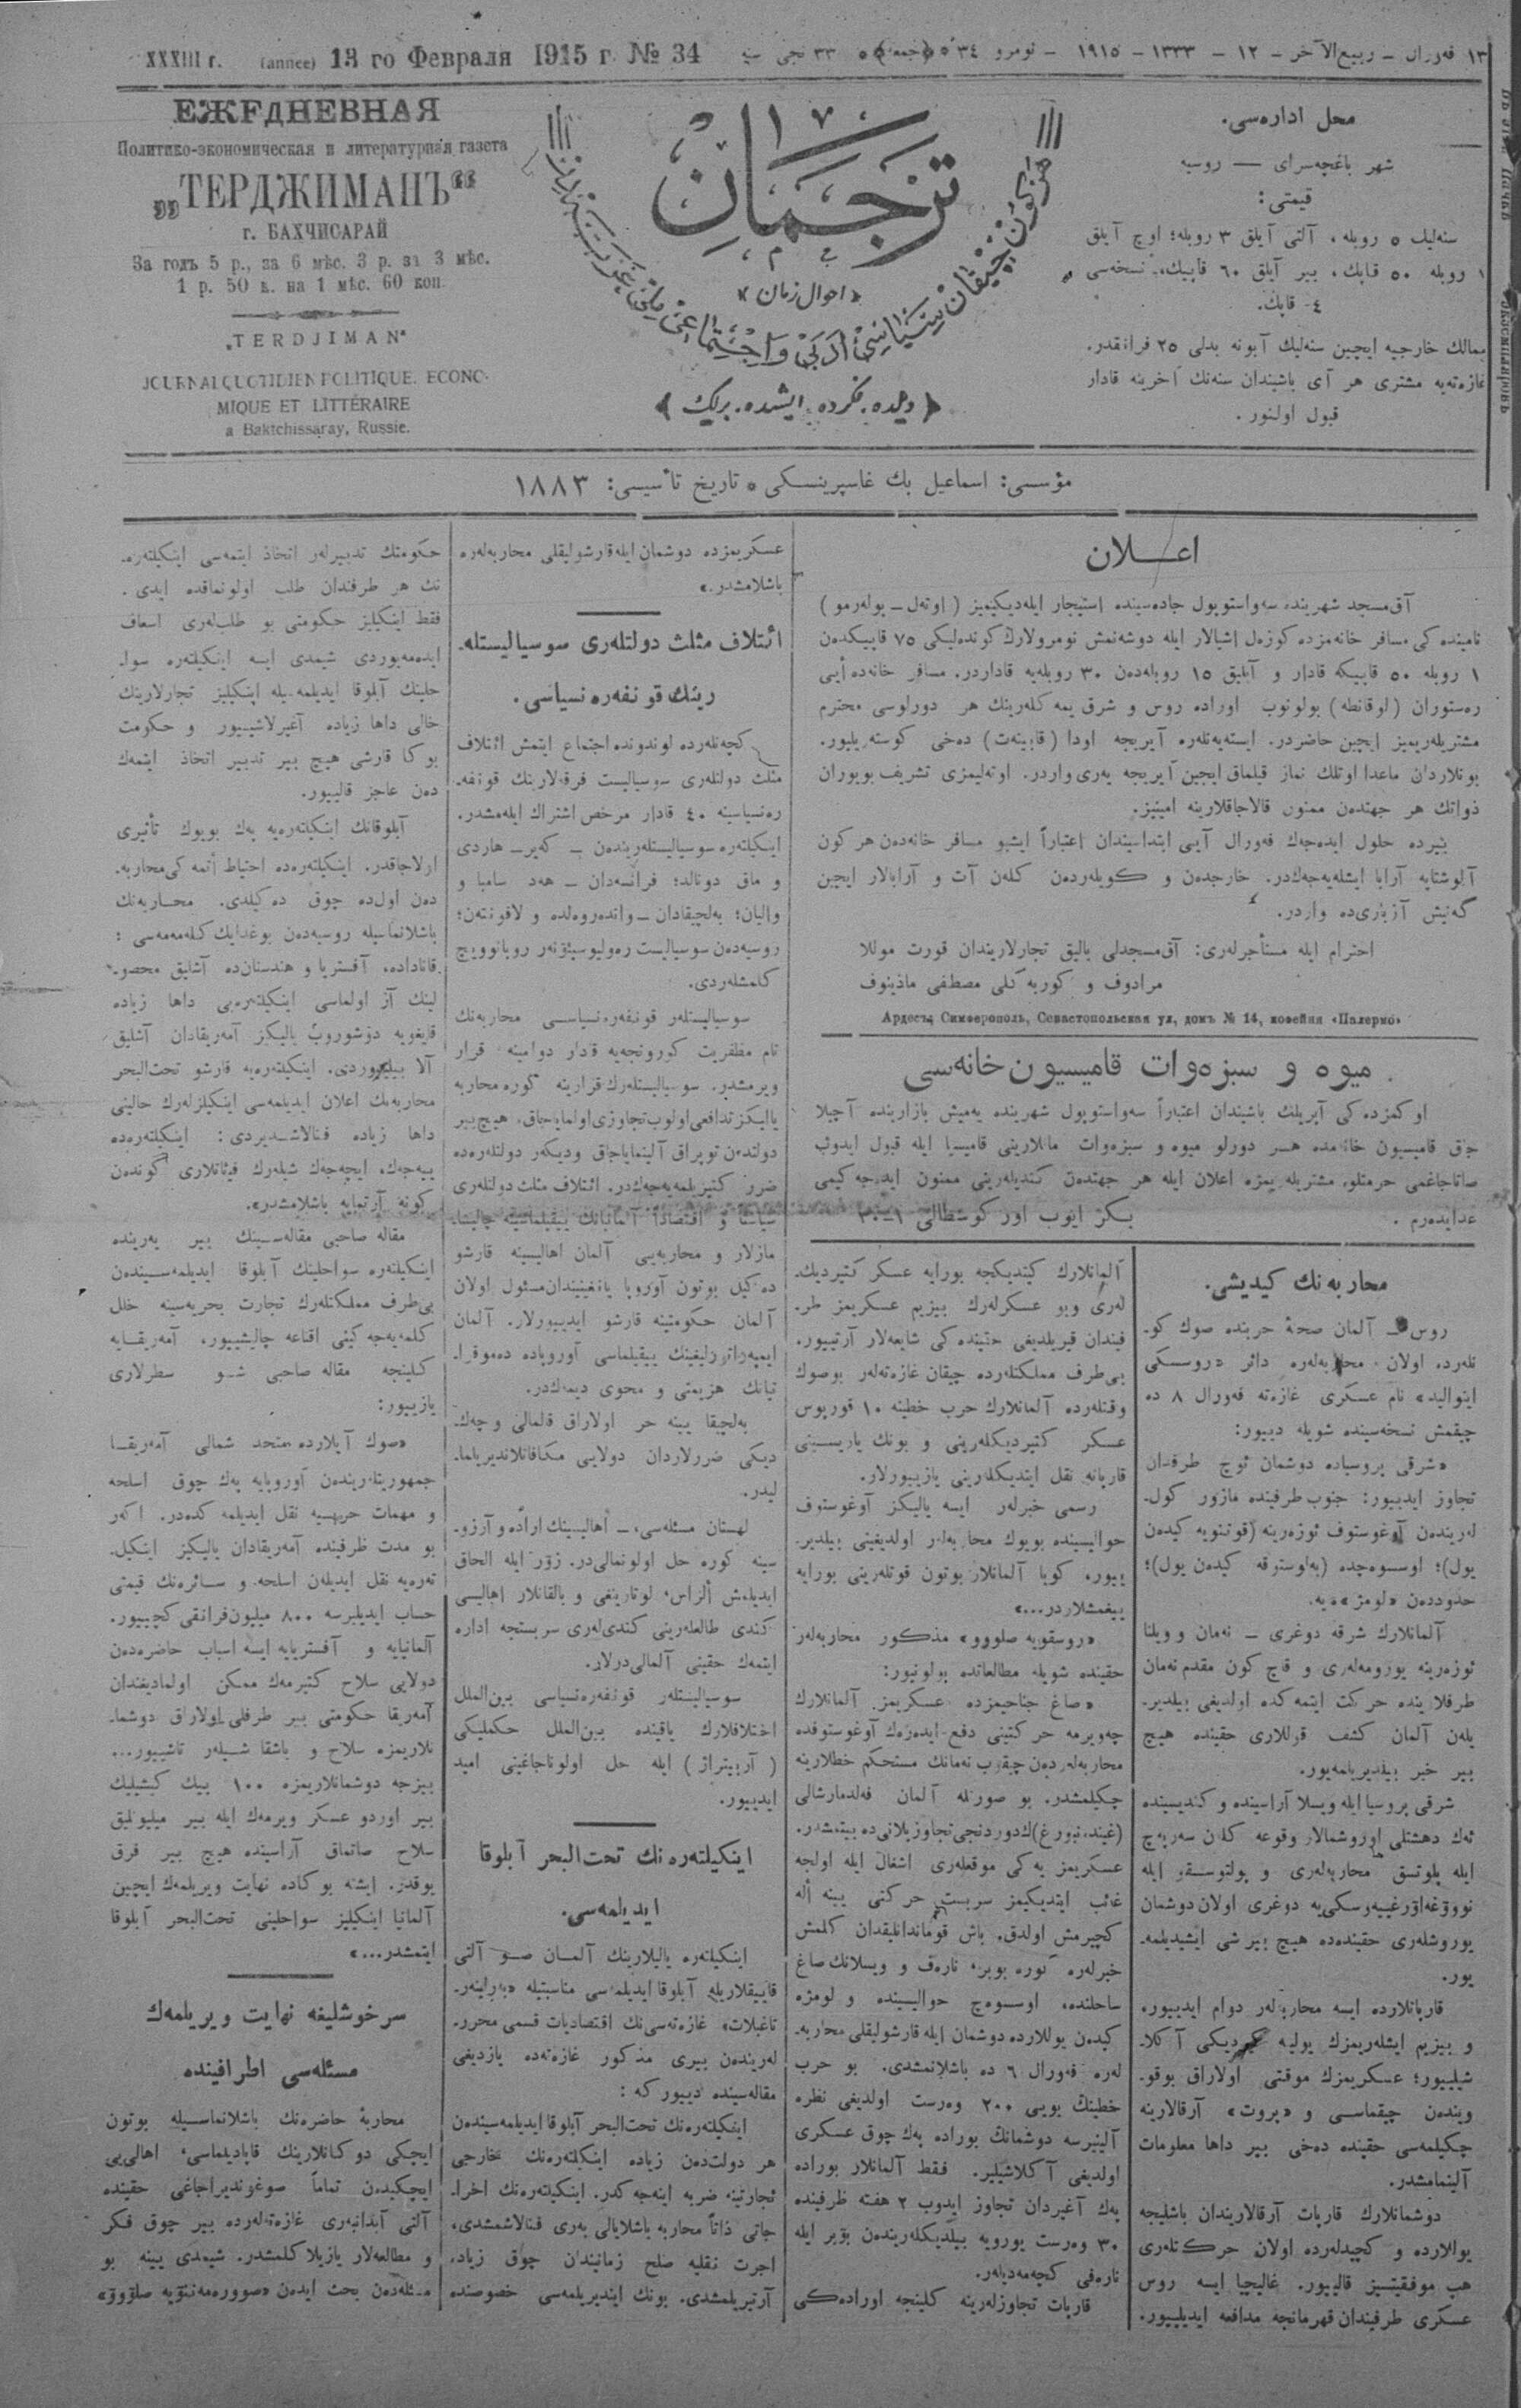 XXXIII г. (année) 13 го Февраля 1915 г. № 34
١٣ فەورال ـ ربیع‌الآخر ـ ١٢ ـ ١٣٣٣ ـ ١٩١٥ ـ نومرو ٣٤ (جمعه) ٣٣ نجی سنه
ЕЖЕДНЕВНАЯ
Политико-экономическая и литературная газета
„ТЕРДЖИМАНЪ“
г. БАХЧИСАРАЙ
За годъ 5 р., за 6 мѣс. 3 р. за 3 мѣс.
1 р. 50 к. на 1 мѣс. 60 коп.
„TERDJIMAN“
JOURNAL QUOTIDIEN POLITIQUE. ECONO-
MIQUE ET LITTÉRAIRE
a Baktchissaray, Russie.
ترجمان
«احوال زمان»
دیلده، فکرده، ایشده، برلك
محل اداره‌سی.
شهر باغچه‌سرای — روسیه
قیمتی:
سنه‌لیك ٥ روبله، آلتی آیلق ٣ روبله؛ اوچ آیلق
١ روبله ٥٠ قاپك، بیر آیلق ٦٠ قاپیك، نسخه‌سی
٤- قاپك.
ممالك خارجیه ایچین سنه‌لیك آبونه بدلی ٢٥ فرانقدر.
غازه‌ته‌یه مشتری هر آی باشیندان سنه‌نك آخرینه قادار
قبول اولنور.
مؤسسی: اسماعیل بك غاسپرینسكی * تاریخ تأسیسی: ١٨٨٣
اعــلان
آق‌مسجد شهرینده سه‌واستوپول جاده‌سینده استیجار ایله‌دیكیمیز (اوته‌ل ـ پوله‌رمو)
نامینده كی مسافر خانه‌مزده كوزه‌ل اشیالار ایله دوشه‌نمش نومرولارك كونده‌لیكی ٧٥ قاپیكدەن
١ روبله ٥٠ قاپیكه قادار و آیلیق ١٥ روبله‌دەن ٣٠ روبله‌یه قاداردر. مسافر خانه‌ده أیی
ره‌ستوران (لوقانطه) بولونوب اوراده روس و شرق یمه كله‌رینك هر دورلوسی محترم
مشتریله‌ریمیز ایچین حاضردر. ایسته‌یه‌نلەره آیریجه اودا (قابینه‌ت) دەخی كوسته‌ریلیور.
بونلاردان ماعدا اوتلك نماز قیلماق ایچین آیریجه یه‌ری واردر. اوته‌لیمزی تشریف بویوران
ذواتك هر جهتدەن ممنون قالاجاقلارینه امینیز.
حلول ایده‌جەك فه‌ورال آیی ابتداسیندان اعتباراً ایشبو مسافر خانه‌دەن هر كون
آلوشتایه آرابا ایشله‌یه‌جەكدر. خارجدەن و كویله‌ردەن كلەن آت و آرابالار ایچین
گەنیش آزباری‌ده واردر.
احترام ایله مستأجرله‌ری: آق‌مسجدلی بالیق تجارلاریندان قورت موللا
مرادوف و كوربه كلی مصطفی ماذینوف
Ардесъ Симферополь, Севастопольская ул, домъ № 14, кофейня «Палермо»
میوه و سبزه‌وات قامیسیون خانه‌سی
اوكمزده كی آپریلك باشیندان اعتباراً سه‌واستوپول شهرینده یه‌میش بازارینده آچیلا
جق قامیسیون خانه‌مده هــر دورلو میوه و سبزه‌وات ماللارینی قامیسیا ایله قبول ایدوب
صاتاجاغمی حرمتلو مشتریله‌ریمزه اعلان ایله هر جهتدەن كندیله‌رینی ممنون ایده‌جه كیمی
عدایدەرم.
بكر ایوب اور كوسطالی ١ـ٣٠
محاربه‌نك كیدیشی.
روس ـ آلمان صحهٔ حربنده صوك كو-
نله‌رده اولان محاربه‌له‌ره دائر «روسسكی
اینوالید» نام عسكری غازه‌ته فه‌ورال ٨ ده
چیقمش نسخه‌سینده شویله دییور:
«شرقی پروسیاده دوشمان ئوچ طرفدان
تجاوز ایدییور: جنوب طرفینده مازور كول-
له‌ریندەن آوغوستوف ئوزه‌رینه (قوننویه كیدەن
یول)؛ اوسسوه‌چده (به‌لوستوقه كیدەن یول)؛
حدوددەن «لومژ»‌یه.
آلمانلارك شرقه دوغری ـ نه‌مان و ویلنا
ئوزه‌رینه یورومه‌له‌ری و قاچ كون مقدم نه‌مان
طرفلارینده حركت ایتمه كده اولدیغی بیلدیر-
یلەن آلمان كشف قوللاری حقینده هیچ
بیر خبر بیلدیریلمه‌یور.
شرقی پروسیا ایله ویسلا آراسینده و كندیسینده
ئەك دهشتلی اوروشمالار وقوعه كلن سه‌رپه‌چ
ایله پلوتسق محاربه‌له‌ری و پولتوسقو ایله
نووۋغه‌اورغییه‌وسكی‌یه دوغری اولان دوشمان
یوروشله‌ری حقینده‌ده هیچ بیر شی ایشیدیلمه-
یور.
قارپاتلارده ایسه محاربه‌لەر دوام ایدییور،
و بیزیم ایشله‌ریمزك یولیه كیردیكی آكلا-
شیلییور؛ عسكریمزك موقتی اولاراق بوقو-
ویندەن چیقماسی و «پروت» آرقالارینه
چكیلمه‌سی حقینده دەخی بیر داها معلومات
آلینمامشدر.
دوشمانلارك قارپات آرقالاریندان باشلیجه
یوللارده و كچیدله‌رده اولان حركتله‌ری
هپ موفقیتسیز قالییور. غالیچیا ایسه روس
عسكری طرفیندان قهرمانجه مدافعه ایدیلییور.
آلمانلارك كیتدیكجه بورایه عسكر كتیردیك-
له‌ری وبو عسكرله‌رك بیزیم عسكریمز طر-
فیندان قیریلدیغی حقینده كی شایعه‌لار آرتییور.
بی‌طرف مملكتله‌رده چیقان غازه‌ته‌لەر بوصوك
وقتله‌رده آلمانلارك حرب خطینه ١٠ قورپوس
عسكر كتیردیكله‌رینی و بونك یاریسینی
قارپاته نقل ایتدیكله‌رینی یازییورلار.
رسمی خبرلەر ایسه یالیكز آوغوستوف
حوالیسینده بویوك محاربه‌لەر اولدیغینی بیلدیر-
ییور، كویا آلمانلار بوتون قوتله‌رینی بورایه
ییغمشلاردر...»
«روسقویه صلووو» مذكور محاربه‌لەر
حقینده شویله مطالعاتده بولونیور:
«صاغ جناحیمزده عسكریمز آلمانلارك
چه‌ویرمه حركتینی دفع ایده‌رەك آوغوستوفده
محاربه‌له‌ردەن چیقوب نه‌مانك مستحكم خطلارینه
چكیلمشدر. بو صورتله آلمان فه‌لدمارشالی
(غیندەنبورغ)ك دوردنجی تجاوز پلانی‌ده بیتمشدر.
عسكریمز یه كی موقعله‌ری اشغال ایله اولجه
غائب ایتدیكیمز سربست حركتی یینه أله
كچیرمش اولدق. باش قوماندانلیقدان كلمش
خبرله‌ره كوره بوبر، نارەف و ویسلانك صاغ
ساحلنده، اوسسوه‌چ حوالیسینده و لومژه
كیدەن یوللارده دوشمان ایله قارشولیقلی محاربه-
لەره فه‌ورال ٦ ده باشلانمشدی. بو حرب
خطینك بویی ٢٠٠ وه‌رست اولدیغی نظره
آلینیرسه دوشمانك بوراده یەك چوق عسكری
اولدیغی آكلاشیلیر. فقط آلمانلار بوراده
یەك آغیردان تجاوز ایدوب ٢ هفته ظرفینده
٣٠ وه‌رست یورویه بیلدیكله‌ریندەن بوبر ایله
ناره‌فی كچه‌مه‌دیلەر.
قارپات تجاوزله‌رینه كلینجه اوراده‌كی
عسكریمزده دوشمان ایله قارشولیقلی محاربه‌له‌ره
باشلامشدر.»
ائتلاف مثلث دولتله‌ری سوسیالیسته‌له-
رینك قونفه‌ره‌نسیاسی.
كچه‌نله‌رده لوندونده اجتماع ایتمش ائتلاف
مثلث دولتله‌ری سوسیالیست فرقه‌لارینك قونفه-
ره‌نسیاسینه ٤٠ قادار مرخص اشتراك ایله‌مشدر.
اینكیلته‌ره سوسیالیستله‌ریندەن ـ كه‌یر ـ هاردی
و ماق دونالد؛ فرانسه‌دان ـ هه‌د سامبا و
والیان؛ به‌لچیقادان ـ وانده‌روه‌لده و لافونته‌ن؛
روسیه‌دەن سوسیالیست ره‌ولیوسیئونه‌ر روبانوویچ
كلمشله‌ردی.
سوسیالیستلەر قونفه‌ره‌نسیاســی محاربه‌نك
تام مظفریت كورونجه‌یه قادار دوامینه قرار
ویرمشدر. سوسیالیستله‌رك قرارینه كوره محاربه
یالیكز تدافعی اولوب تجاوزی اولمایاجاق، هیچ بیر
دولتدەن توپراق آلینمایاجاق ودیكەر دولتله‌ره‌ده
ضرر كتیریلمه‌یه‌جەكدر. ائتلاف مثلث دولتله‌ری
سیاستاً و اقتصاداً آلمانیانك ییقیلماسینه چالیشا-
مازلار و محاربه‌یی آلمان اهالیسینه قارشو
ده‌كیل بوتون آوروپا یانغینیندان مسئول اولان
آلمان حكومتینه قارشو ایدییورلار. آلمان
ایمپه‌راتورلیغینك ییقیلماسی آوروپاده ده‌موقرا-
تیانك هزیمتی و محوی دیمەكدر.
به‌لچیقا یینه حر اولاراق قلمالی وچەك-
دیكی ضررلاردان دولایی مكافاتلاندیریلما-
لیدر.
لهستان مسئله‌سی، ـ أهالیسینك اراده و آرزو-
سینه كوره حل اولونمالی‌در. زور ایله الحاق
ایدیلمش ألزاس، لوتارینغی و بالقانلار اهالیسی
كندی طالعله‌رینی كندیله‌ری سربستجه اداره
ایتمەك حقینی آلمالی‌درلار.
سوسیالیستلەر قونفه‌ره‌نسیاسی بین‌الملل
اختلافلارك یاقینده بین‌الملل حكملیكی
(آربیتراژ) ایله حل اولوناجاغینی امید
ایدییور.
اینكیلته‌ره‌نك تحت‌البحر آبلوقا
ایدیلمه‌سی.
اینكیلته‌ره یالیلارینك آلمــان صــو آلتی
قاییقلاریله آبلوقا ایدیلمه‌سی مناسبتیله «به‌رلینه‌ر-
تاغبلات» غازه‌ته‌سی‌نك اقتصادیات قسمی محرر-
له‌ریندەن بیری مذكور غازه‌ته‌ده یازدیغی
مقاله‌سینده دییوركه:
اینكیلته‌ره‌نك تحت‌البحر آبلوقا ایدیلمه‌سیندەن
هر دولت‌دەن زیاده اینكیلته‌ره‌نك خارجی
تجارتینه ضربه اینه‌جه كدر. اینكیلته‌ره‌نك اخرا-
جاتی ذاتاً محاربه باشلایالی به‌ری فنالاشمشدی،
اجرت نقلیه صلح زمانیندان چوق زیاده
آرتیریلمشدی. بونك ایندیریلمه‌سی خصوصنده
حكومتك تدبیرلەر اتخاذ ایتمه‌سی اینكیلته‌ره-
نك هر طرفندان طلب اولونماقده ایدی.
فقط اینكیلیز حكومتی بو طلبله‌ری اسعاف
ایده‌مه‌یوردی شیمدی ایسه اینكیلته‌ره سوا-
حلینك آبلوقا ایدیلمه‌سیله اینكیلیز تجارلارینك
حالی داها زیاده آغیرلاشییور و حكومت
بوكا قارشی هیچ بیر تدبیر اتخاذ ایتمەك
دەن عاجز قالییور.
آبلوقانك اینكیلته‌ره‌یه یەك بویوك تأثیری
اولاجاقدر. اینكیلته‌ره‌ده احتیاط أتمه كی محاربه-
دەن اول‌ده چوق ده‌كیلدی. محــاربه‌نك
باشلانماسیله روسیه‌دەن بوغدایك كلمه‌مه‌سی؛
قاناداده، آفستریا و هندستان‌ده آشلیق محصو-
لینك آز اولماسی اینكیلته‌ره‌یی داها زیاده
قایغویه دوشوروب یالیكز آمه‌ریقادان آشلیق
آلا بیلییوردی. اینكیلته‌ره‌یه قارشو تحت‌البحر
محاربه‌نك اعلان ایدیلمه‌سی اینكیلیزله‌رك حالینی
داها زیاده فنالاشدیردی: اینكیلته‌ره‌ده
ییه‌جەك، ایچه‌جەك شیله‌رك فیئاتلاری كوندەن
كونه آرتمایه باشلامشدر».
مقاله صاحبی مقاله‌ســینك بیر یه‌رینده
اینكیلته‌ره سواحلینك آبلوقا ایدیلمه‌ســیندەن
بی‌طرف مملكتله‌رك تجارت بحریه‌سینه خلل
كلمه‌یه‌جه كینی اقناعه چالیشییور، آمه‌ریقــایه
كلینجه مقاله صاحبی شــو سطرلاری
یازییور:
«صوك آیلارده متحد شمالی آمه‌ریقــا
جمهوریتله‌ریندەن آوروپایه یەك چوق اسلحه
و مهمات حربیــیه نقل ایدیلمه كده‌در. اكەر
بو مدت ظرفینده آمه‌ریقادان یالیكیز اینكیل-
ته‌ره‌یه نقل ایدیلەن اسلحه و ســائره‌نك قیمتی
حساب ایدیلیرسه ٨٠٠ میلیون فرانقی كچییور.
آلمانیایه و آفستریایه ایسه اسباب حاضره‌دەن
دولایی سلاح كتیرمەك ممكن اولمادیغندان
آمه‌ریقا حكومتی بیر طرفلی اولاراق دوشما-
نلاریمزه سلاح و باشقا شــیلەر تاشییور...
بیزجه دوشمانلاریمزه ١٠٠ بیك كیشیلیك
بیر اوردو عسكر ویرمەك ایله بیر میلیونلیق
سلاح صاتماق آراسینده هیچ بیر فرق
یوقدر. ایشته بوكاده نهایت ویریلمەك ایچین
آلمانیا اینكیلیز سواحلینی تحت‌البحر آبلوقا
ایتمشدر...»
سرخوشلیغه نهایت ویریلمەك
مسئله‌سی اطرافینده
محاربهٔ حاضره‌نك باشلانماســیله بوتون
ایچكی دوكانلارینك قاپادیلماسی، اهالی‌یی
ایچكیدەن تماماً صوغوندیراجاغی حقینده
آلتی آیدانبه‌ری غازه‌ته‌له‌رده بیر چوق فكر
و مطالعه‌لار یازیلا كلمشدر. شیمدی یینه بو
مسئله‌دەن بحث ایدەن «سووره‌مه‌ننویه صلووو»